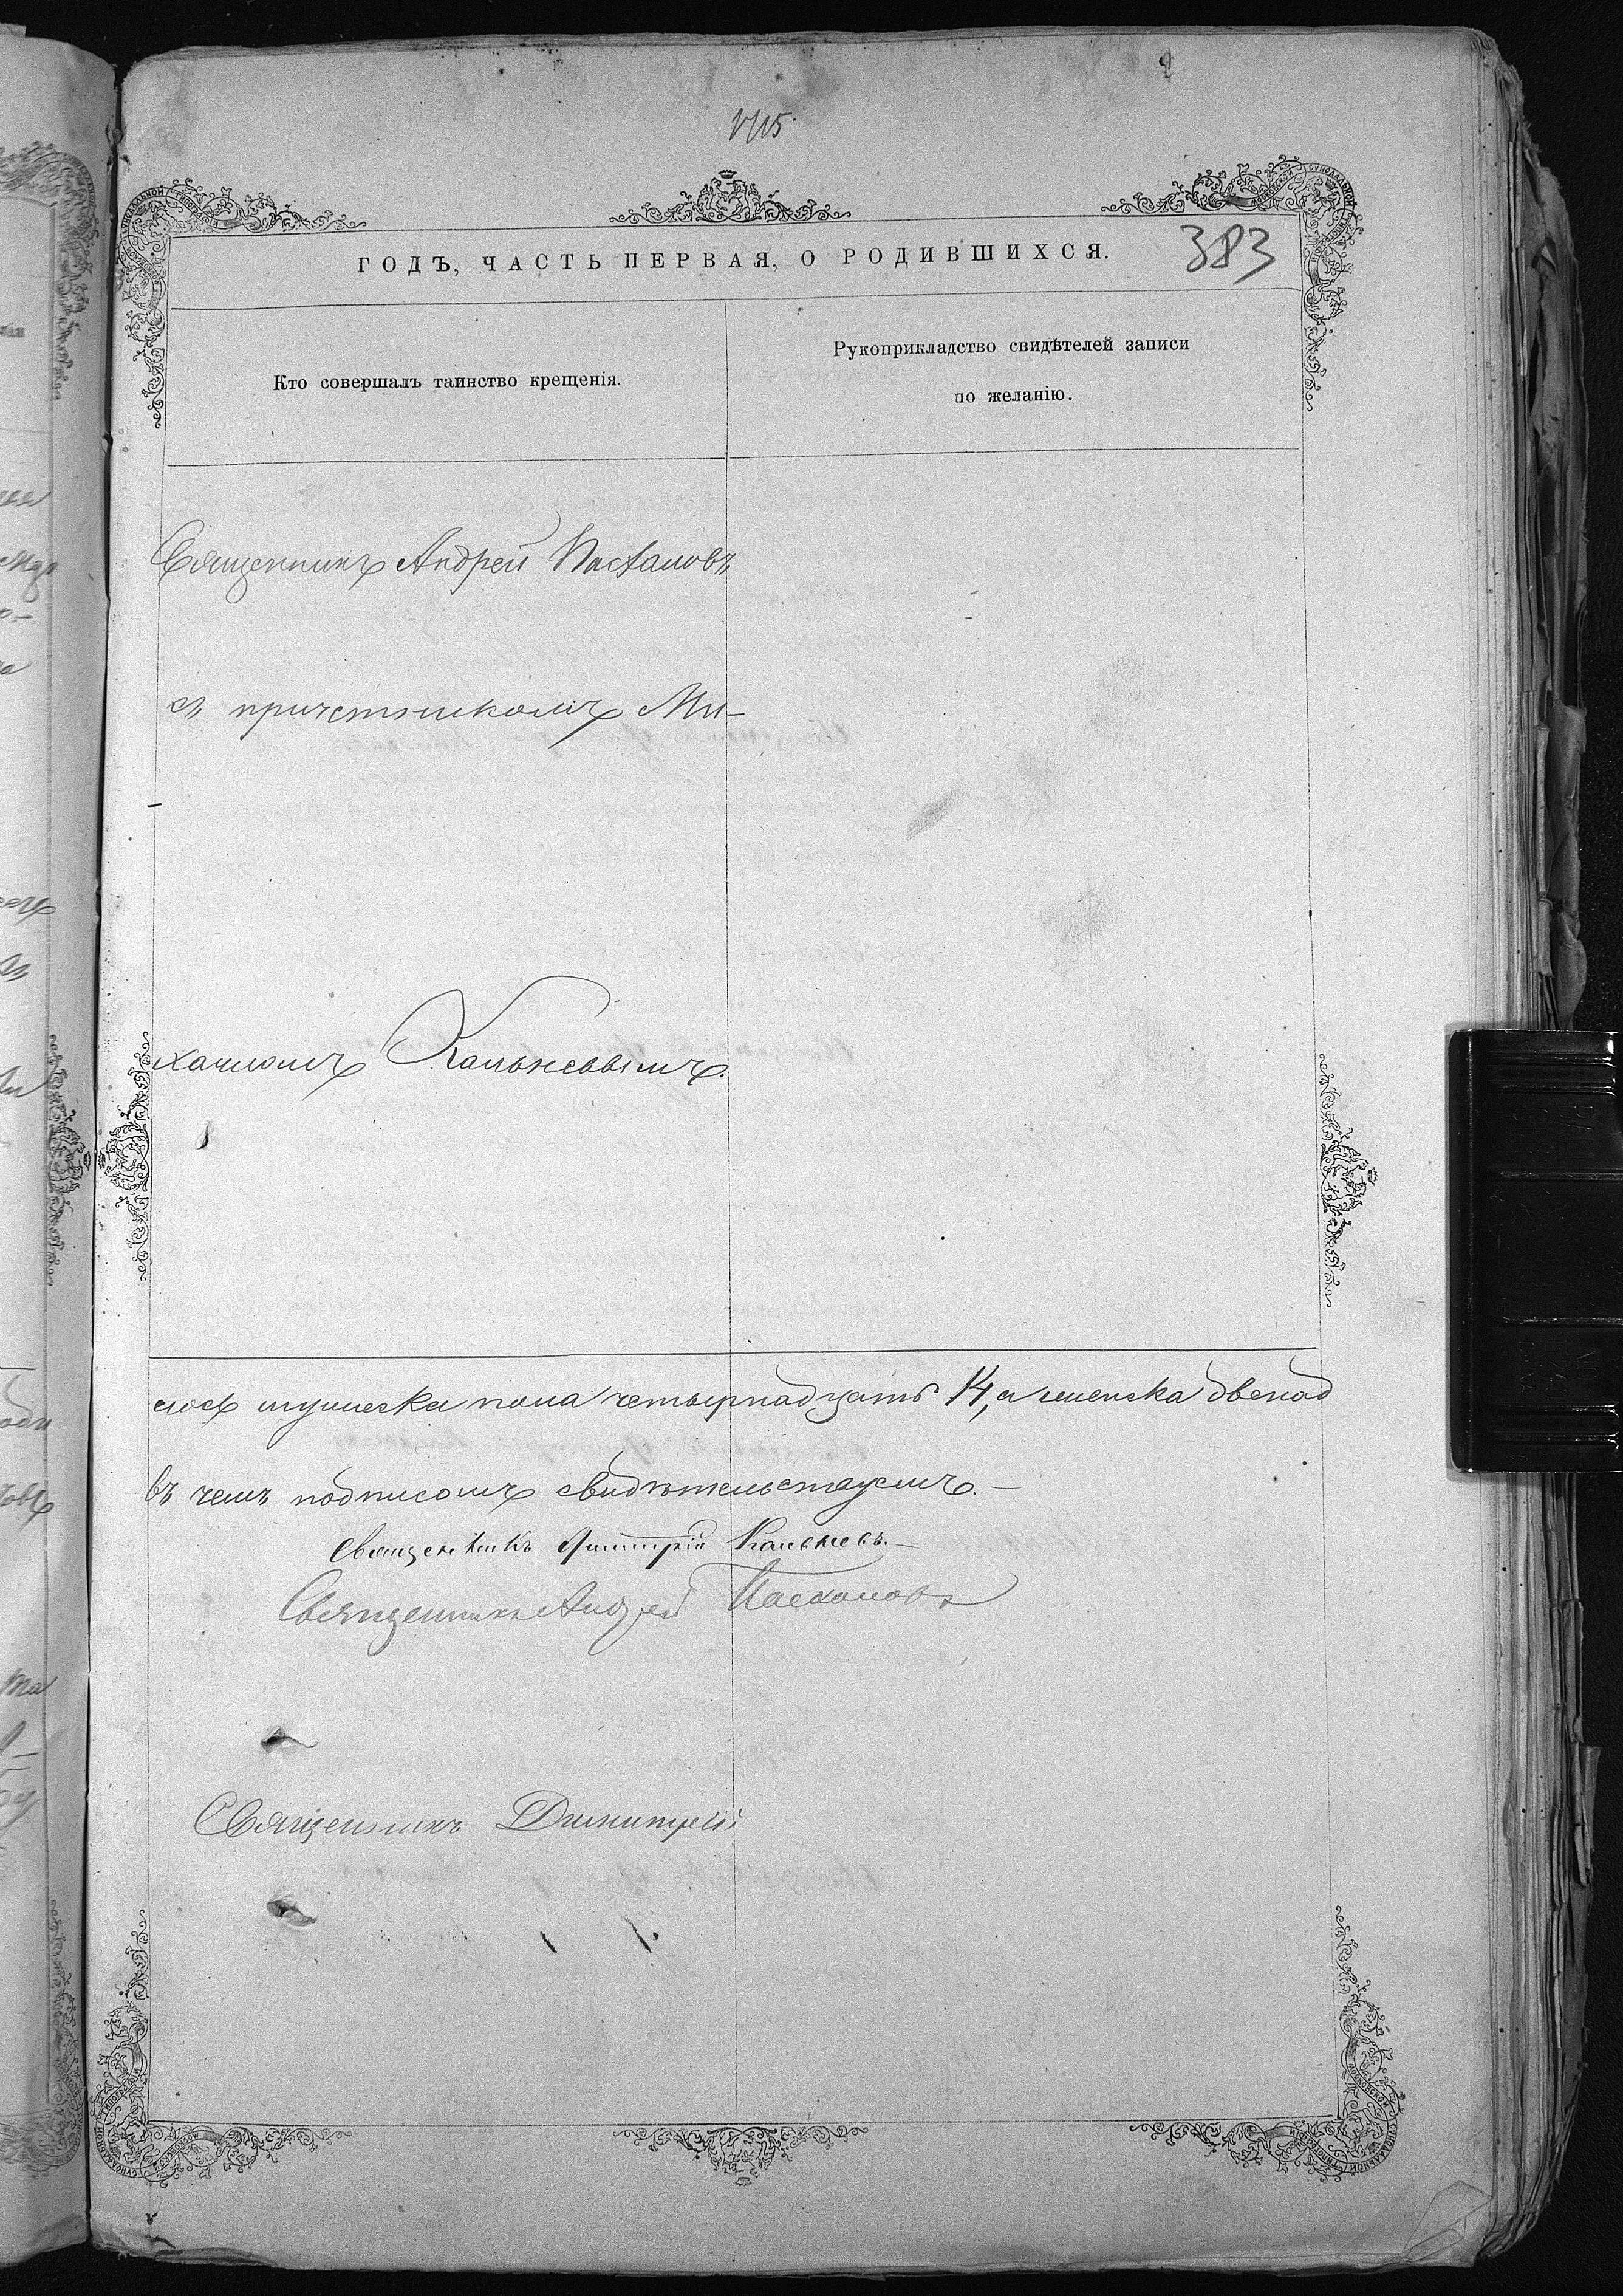 383
ГОДЪ, ЧАСТЬ ПЕРВАЯ, О РОДИВШИХСЯ.
Кто совершалъ таинство крещенія.
Рукоприкладство свидѣтелей записи
по желанію.
Священникъ Андрей Пасхаловъ
съ причетникомъ Ми-
хаиломъ Кальневымъ.
мужеска пола четырнадцать 14, а женска двенад
въ чемъ подписомъ свидѣтельствуемъ.—
Священникъ Димитрій Кальневъ.—
Священникъ Андрей Пасхаловъ
Священникъ Димитрий